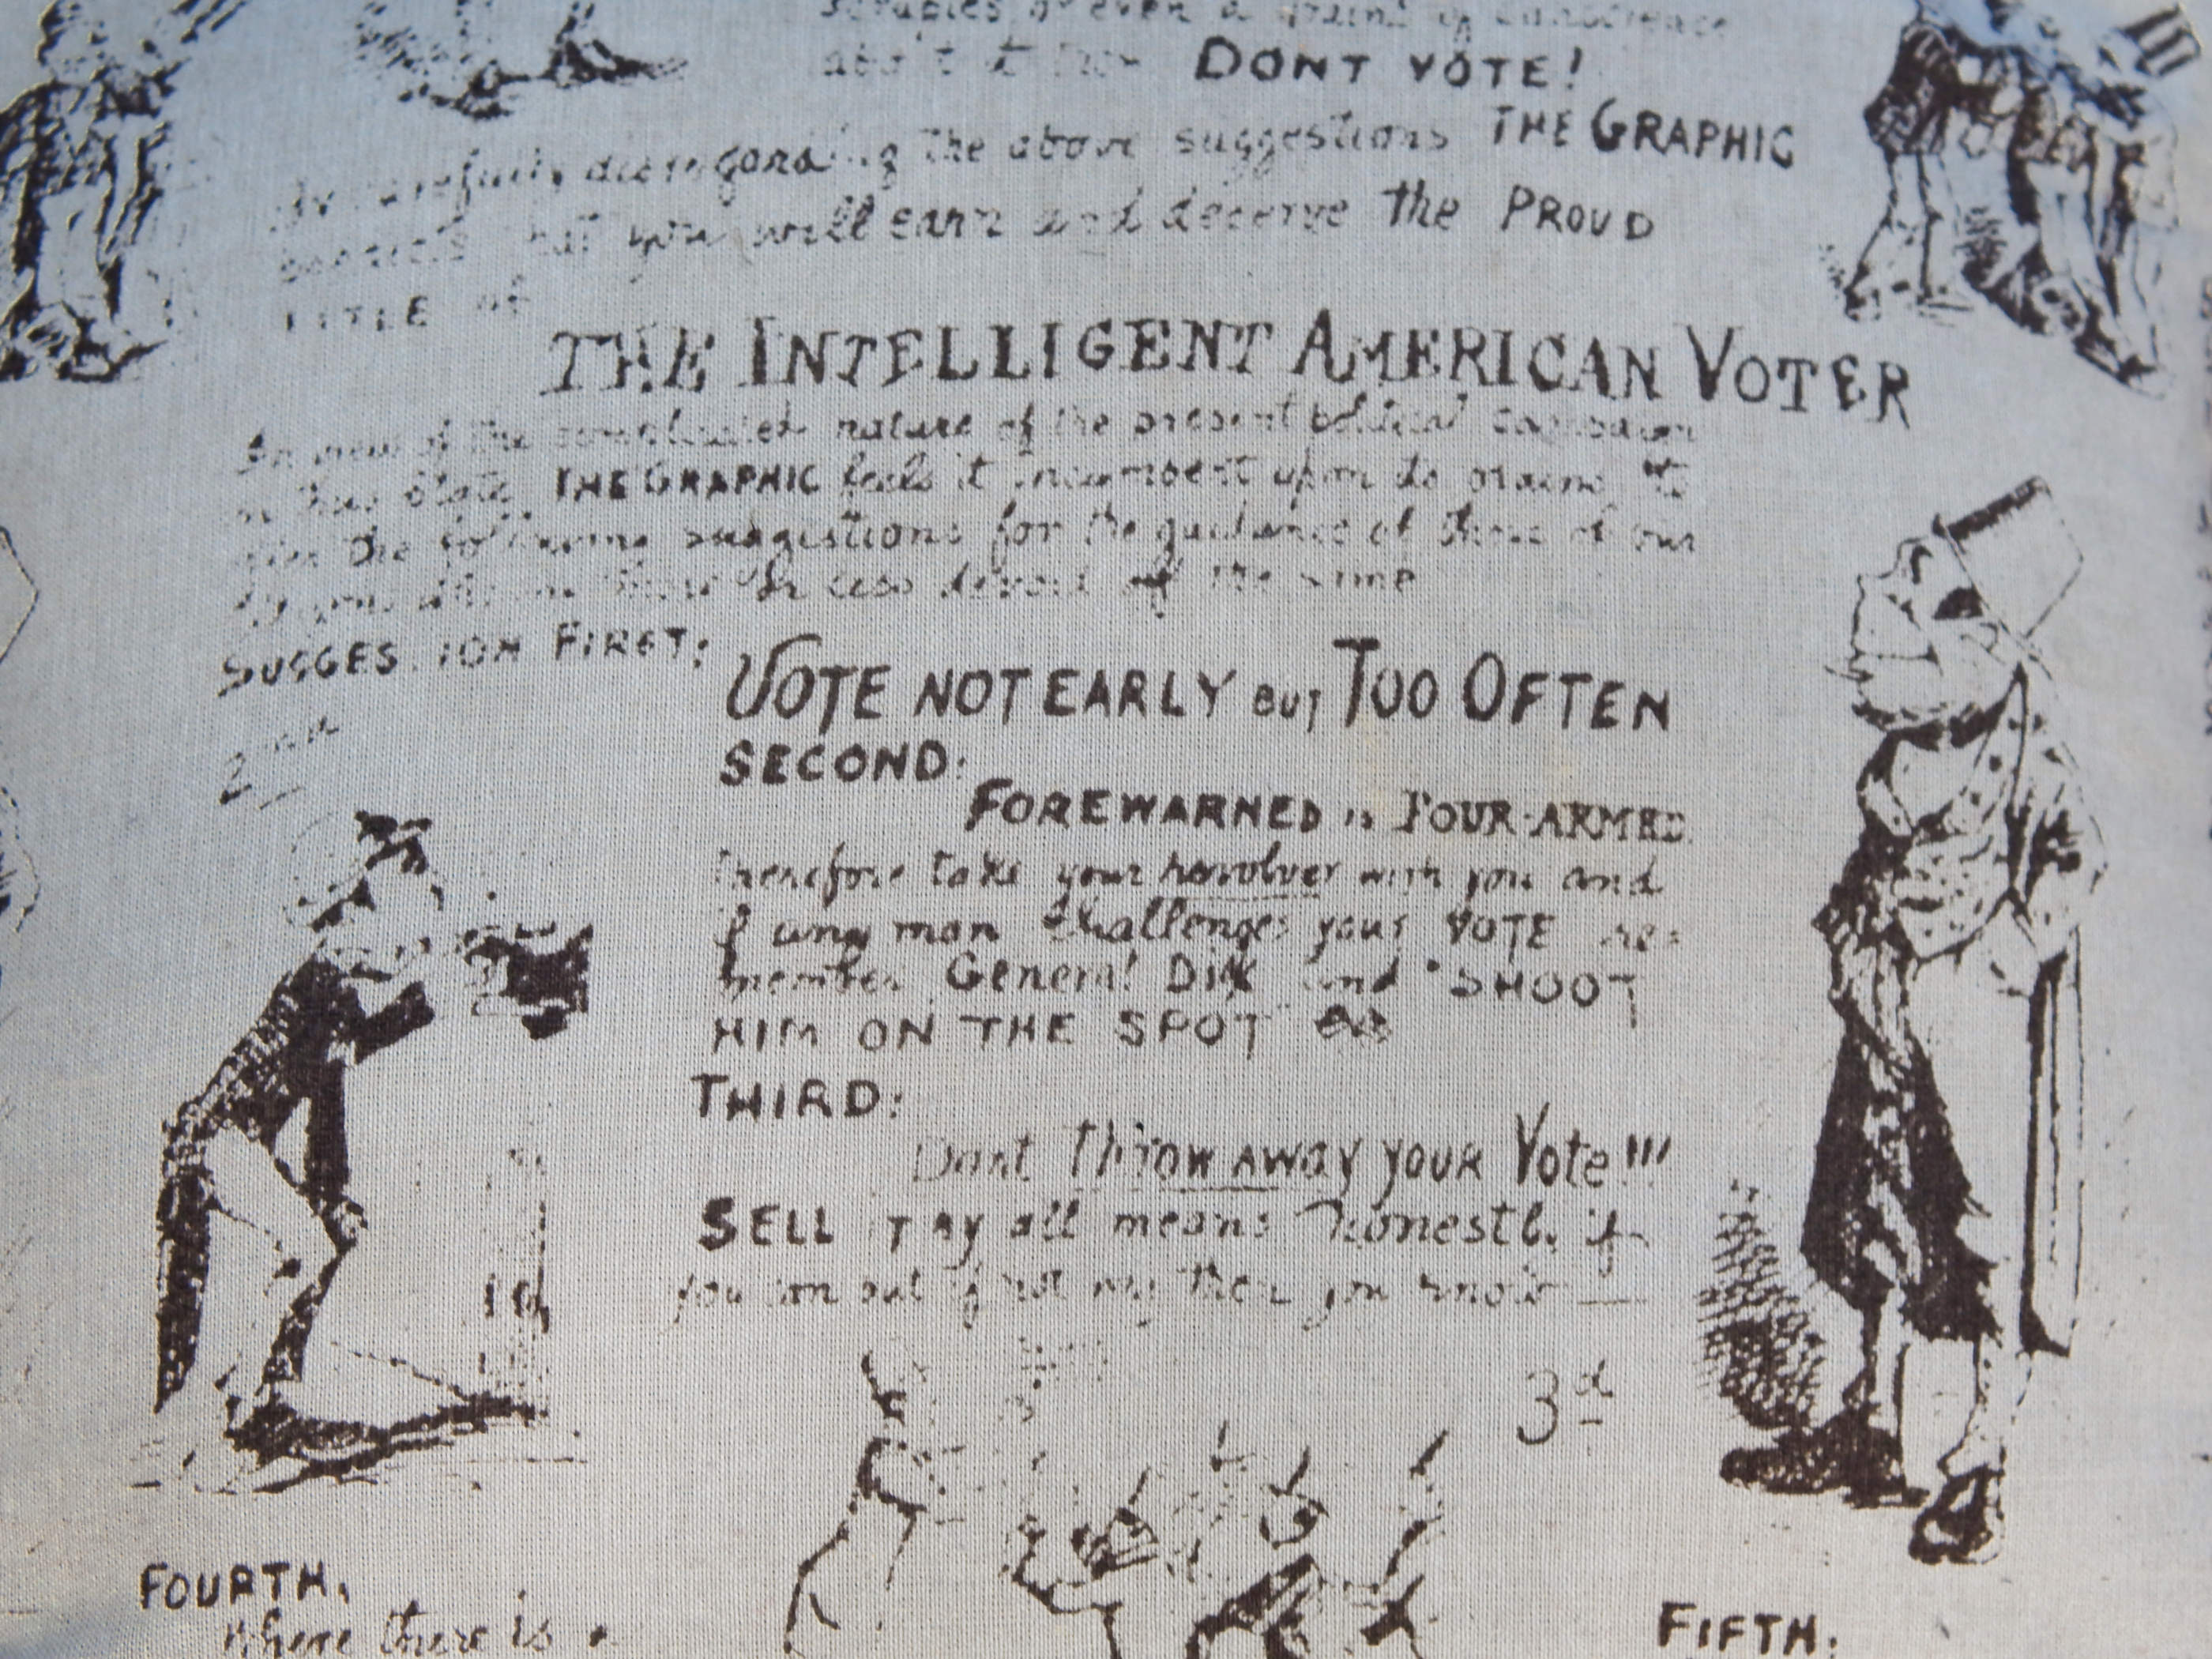 scruples or even a grain of conscience
about it then DONT VOTE!
By carefully disregarding the above suggestions THE GRAPHIC
that you will earn and deserve the PROUD
TITLE of
THE INTELLIGENT AMERICAN VOTER
In view of the complicated nature of the present political campaign
in this State THE GRAPHIC feels it incumbent upon its to
give the following suggestions for the guidance of those of our
or less devoid of the same
SUGGESTION FIRST:
VOTE NOT EARLY BUT TOO OFTEN
2nd
SECOND:
FOREWARNED is FOUR-ARMED.
Therefore take your revolver with you and
if any man challenges your VOTE re=
member General Dix and "SHOOT
HIM ON THE SPOT"
THIRD:
Dont Throw AWAY YOUR Vote!!!
SELL IT by all means honestly if
you can but if not why then you know —
3d
FOURTH.
Where there is
FIFTH: